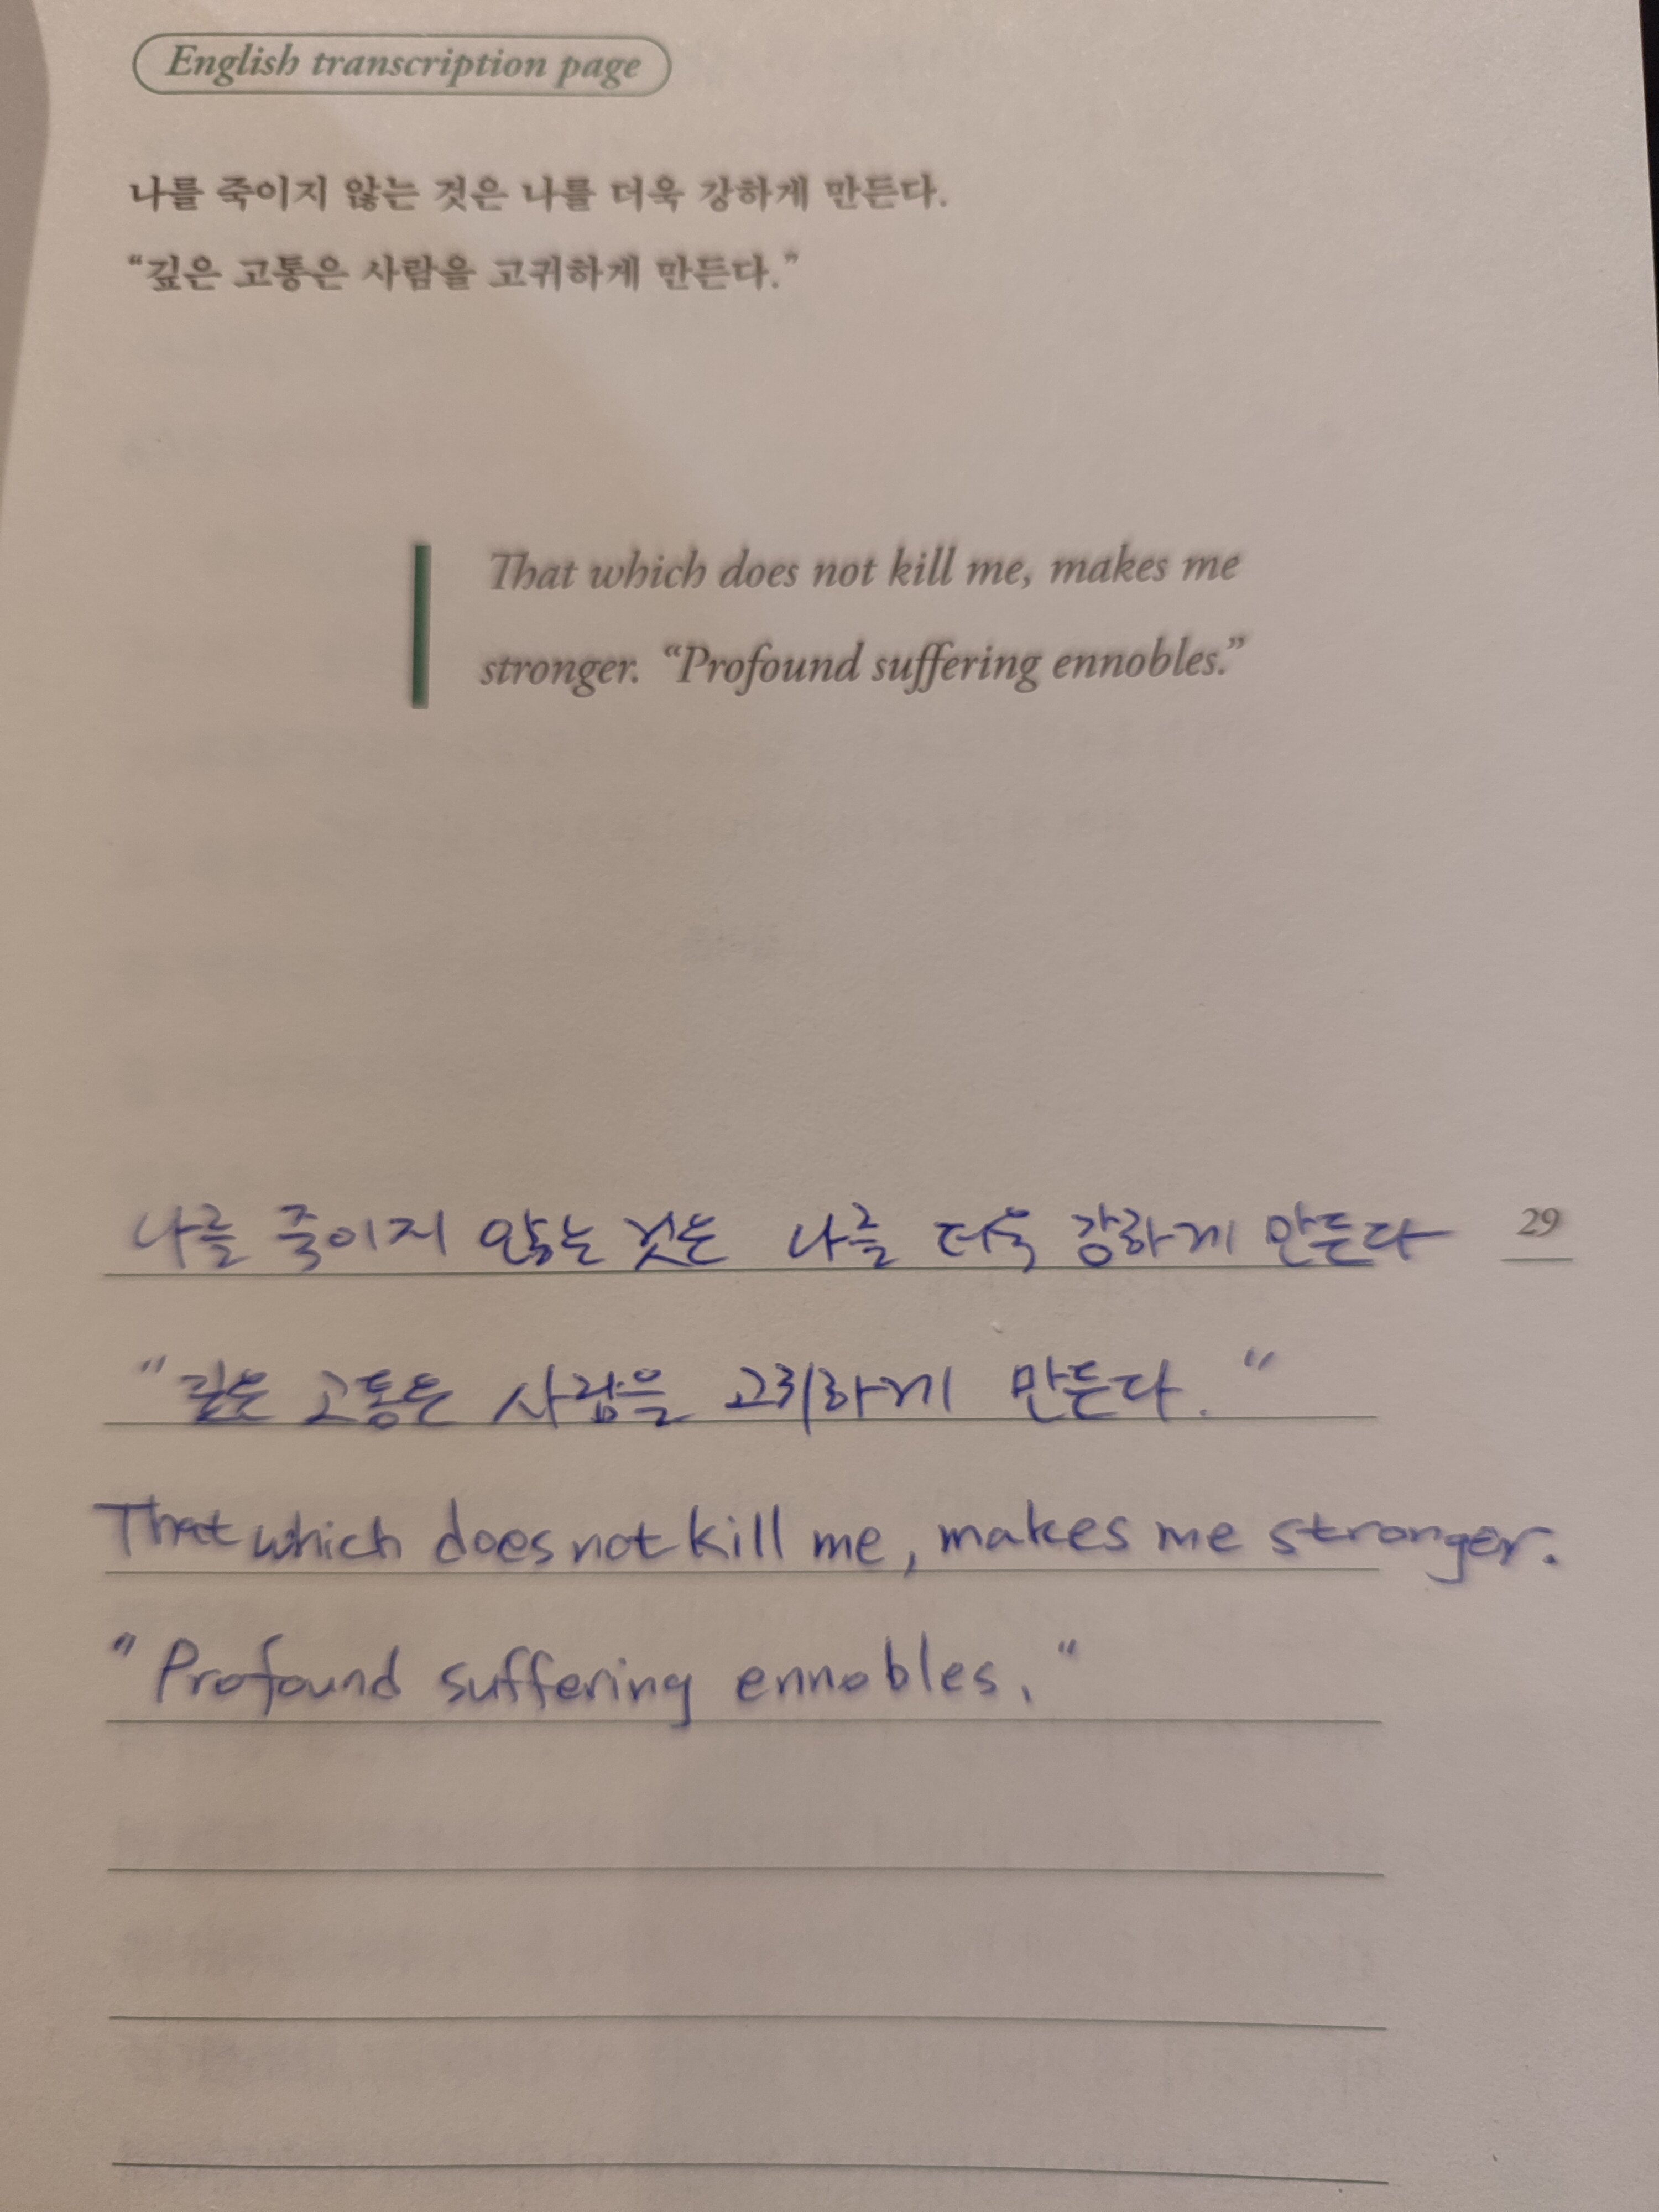 English transcription page
나를 죽이지 않는 것은 나를 더욱 강하게 만든다.
“깊은 고통은 사람을 고귀하게 만든다.”
That which does not kill me, makes me
stronger. “Profound suffering ennobles.”
나를 죽이지 않는 것은 나를 더욱 강하게 만든다
29
"깊은 고통은 사람을 고귀하게 만든다."
That which does not kill me, makes me stronger.
"Profound suffering ennobles."